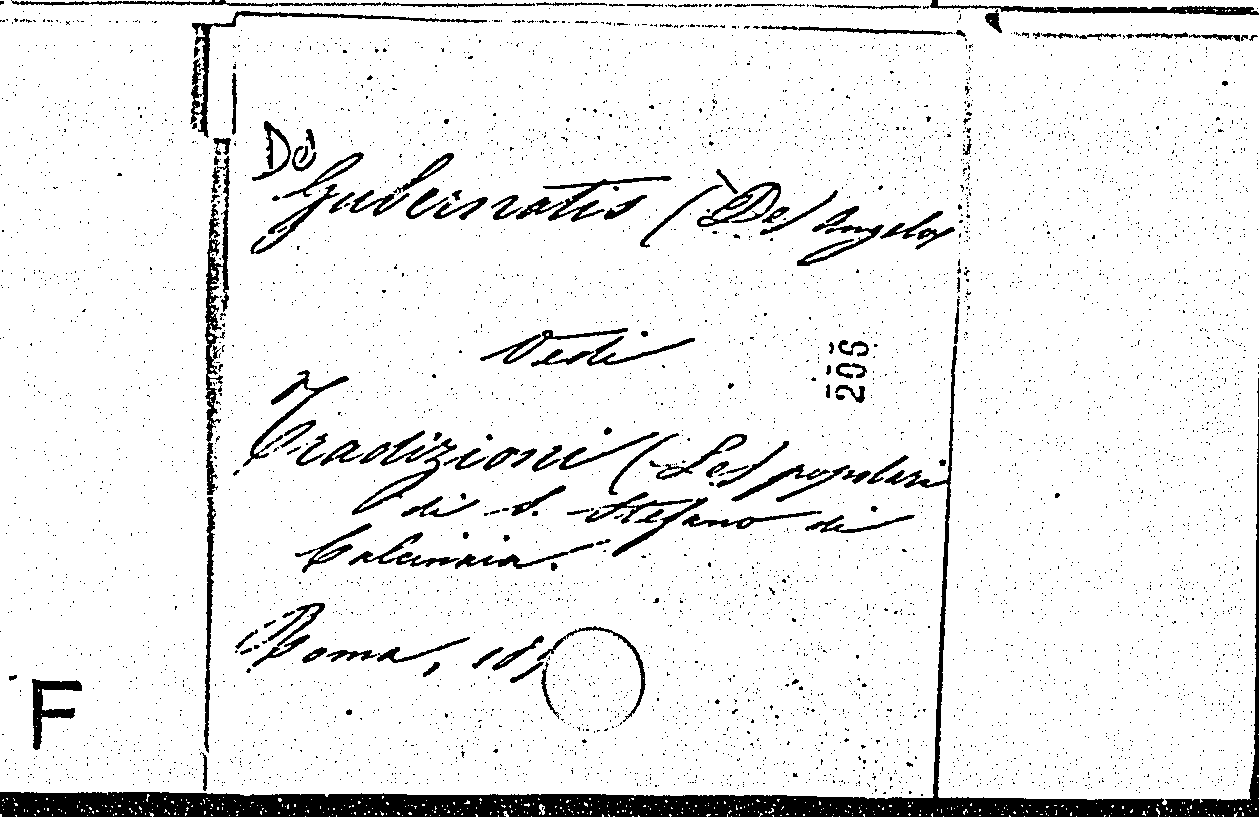 De
Gubernatis (De) Angelo
Vedi
206
Tradizioni (Le) popolari
di S. Stefano di
Calcinaia.
Roma, 189
F